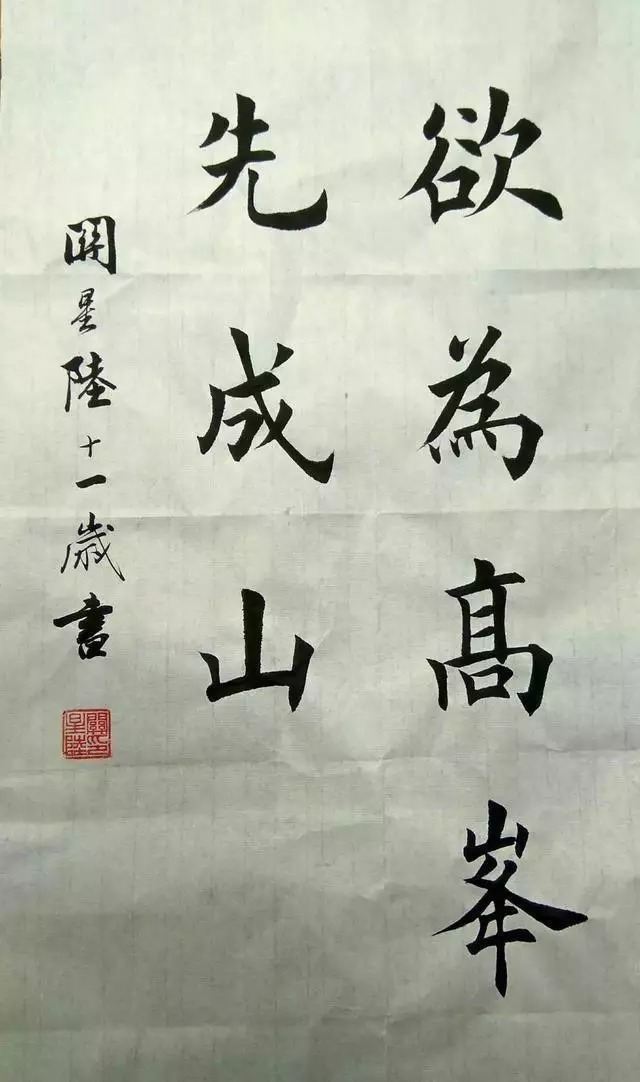 欲為高峯
先成山
關星陸十一歲書
關星陸印